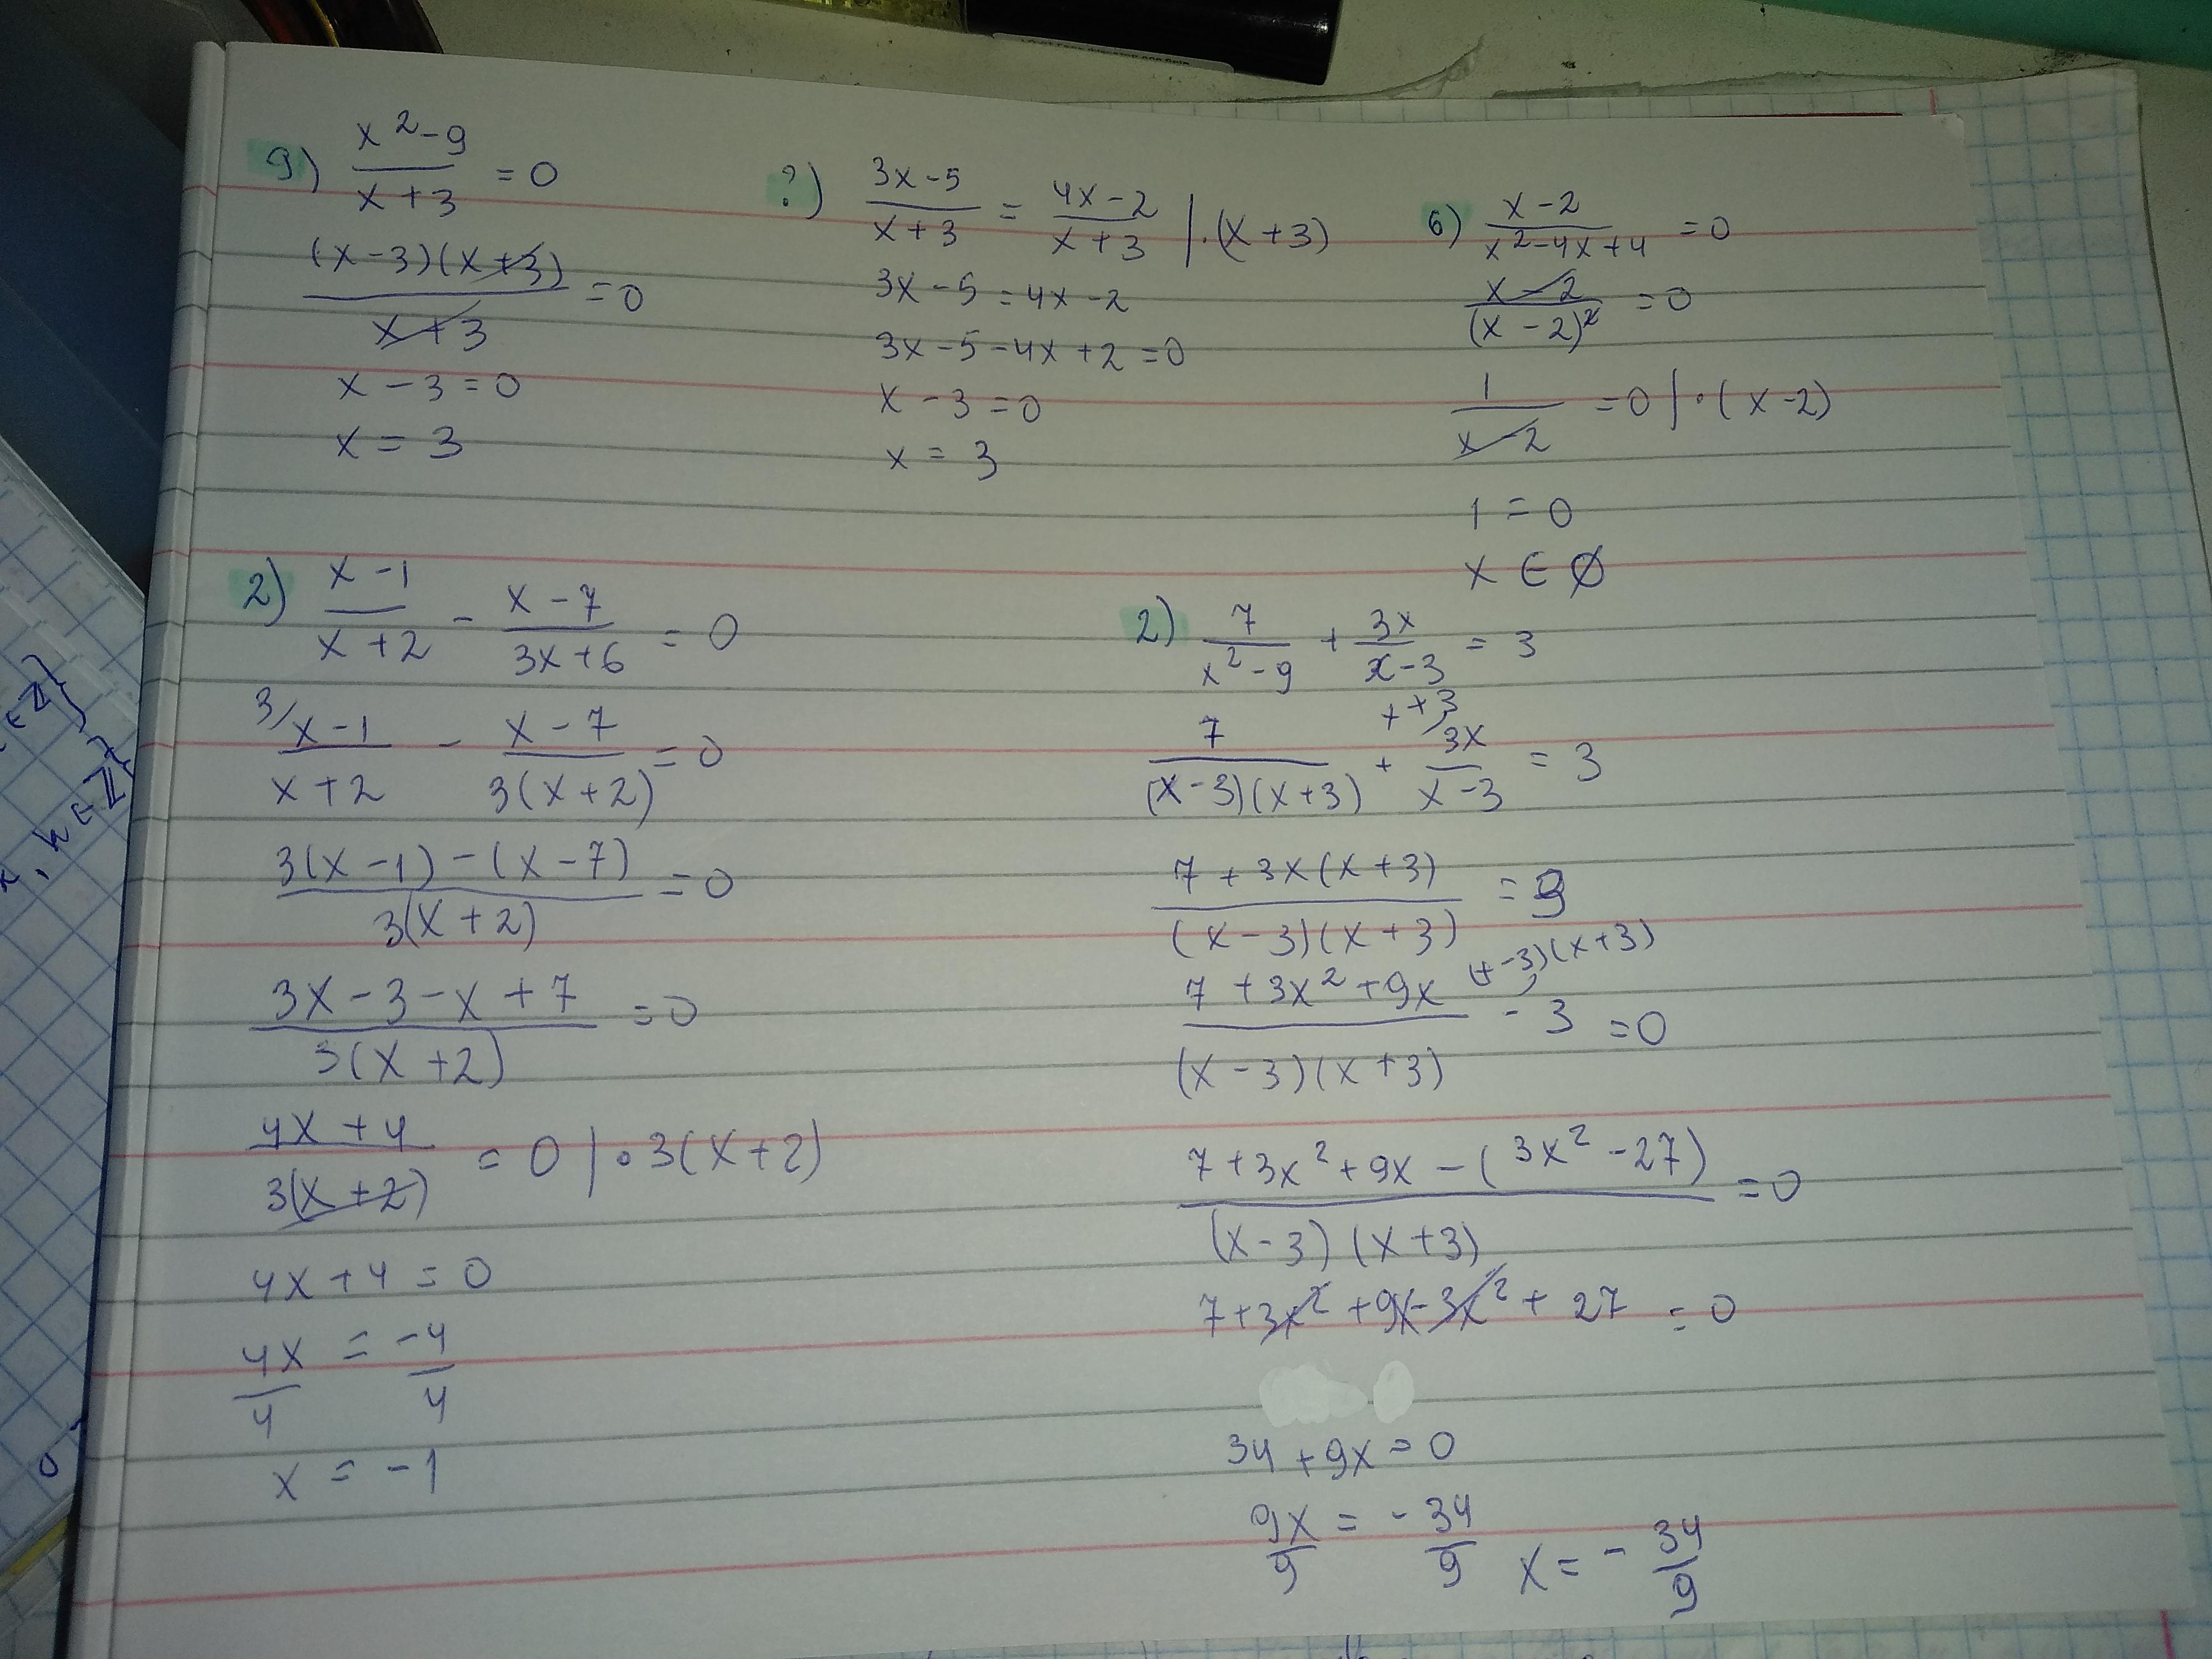 9) (x² - 9)/(x + 3) = 0
((x - 3)(x + 3))/(x + 3) = 0
x - 3 = 0
x = 3
?) (3x - 5)/(x + 3) = (4x - 2)/(x + 3) | · (x + 3)
3x - 5 = 4x - 2
3x - 5 - 4x + 2 = 0
x - 3 = 0
x = 3
6) (x - 2)/(x² - 4x + 4) = 0
(x - 2)/(x - 2)² = 0
1/(x - 2) = 0 | · (x - 2)
1 = 0
x ∈ ∅
2) (x - 1)/(x + 2) - (x - 7)/(3x + 6) = 0
3/ (x - 1)/(x + 2) - (x - 7)/(3(x + 2)) = 0
(3(x - 1) - (x - 7))/(3(x + 2)) = 0
(3x - 3 - x + 7)/(3(x + 2)) = 0
(4x + 4)/(3(x + 2)) = 0 | · 3(x + 2)
4x + 4 = 0
4x/4 = -4/4
x = -1
2) 7/(x² - 9) + 3x/(x - 3) = 3
x + 3
7/((x - 3)(x + 3)) + 3x/(x - 3) = 3
(7 + 3x(x + 3))/((x - 3)(x + 3)) = 3
(x - 3)(x + 3)
(7 + 3x² + 9x)/((x - 3)(x + 3)) - 3 = 0
(7 + 3x² + 9x - (3x² - 27))/((x - 3)(x + 3)) = 0
7 + 3x² + 9x - 3x² + 27 = 0
34 + 9x = 0
9x/9 = -34/9 x = -34/9
∈ ℤ}
, k ∈ ℤ}